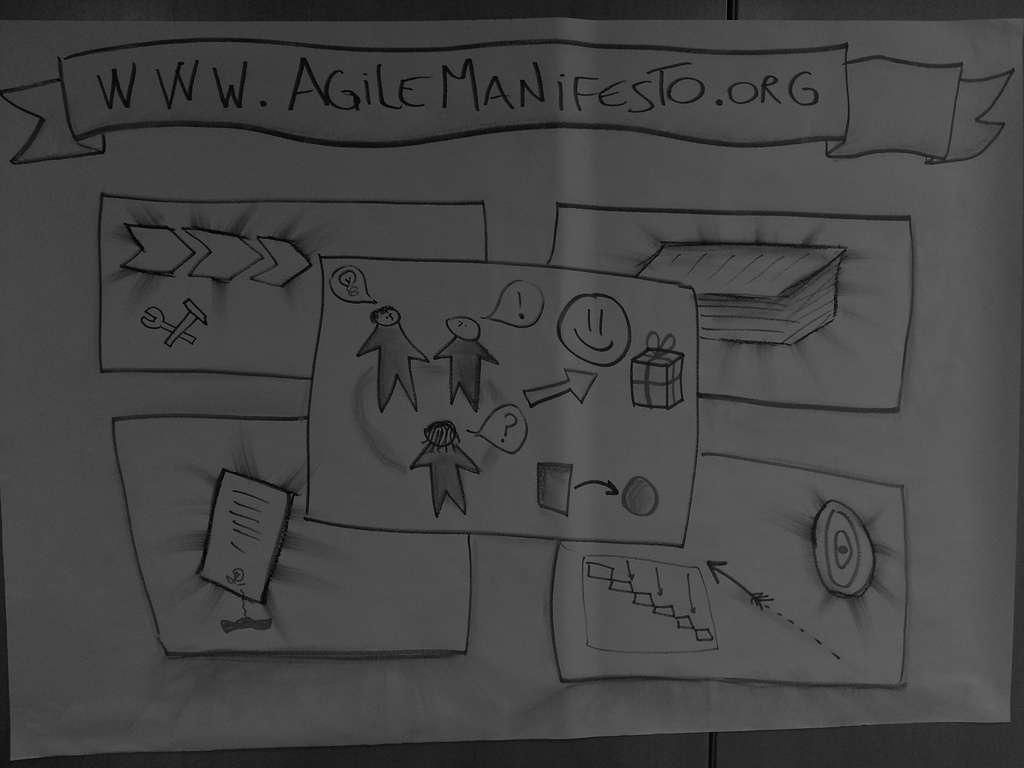 WWW.AGiLEMANiFESTO.ORG
!
?